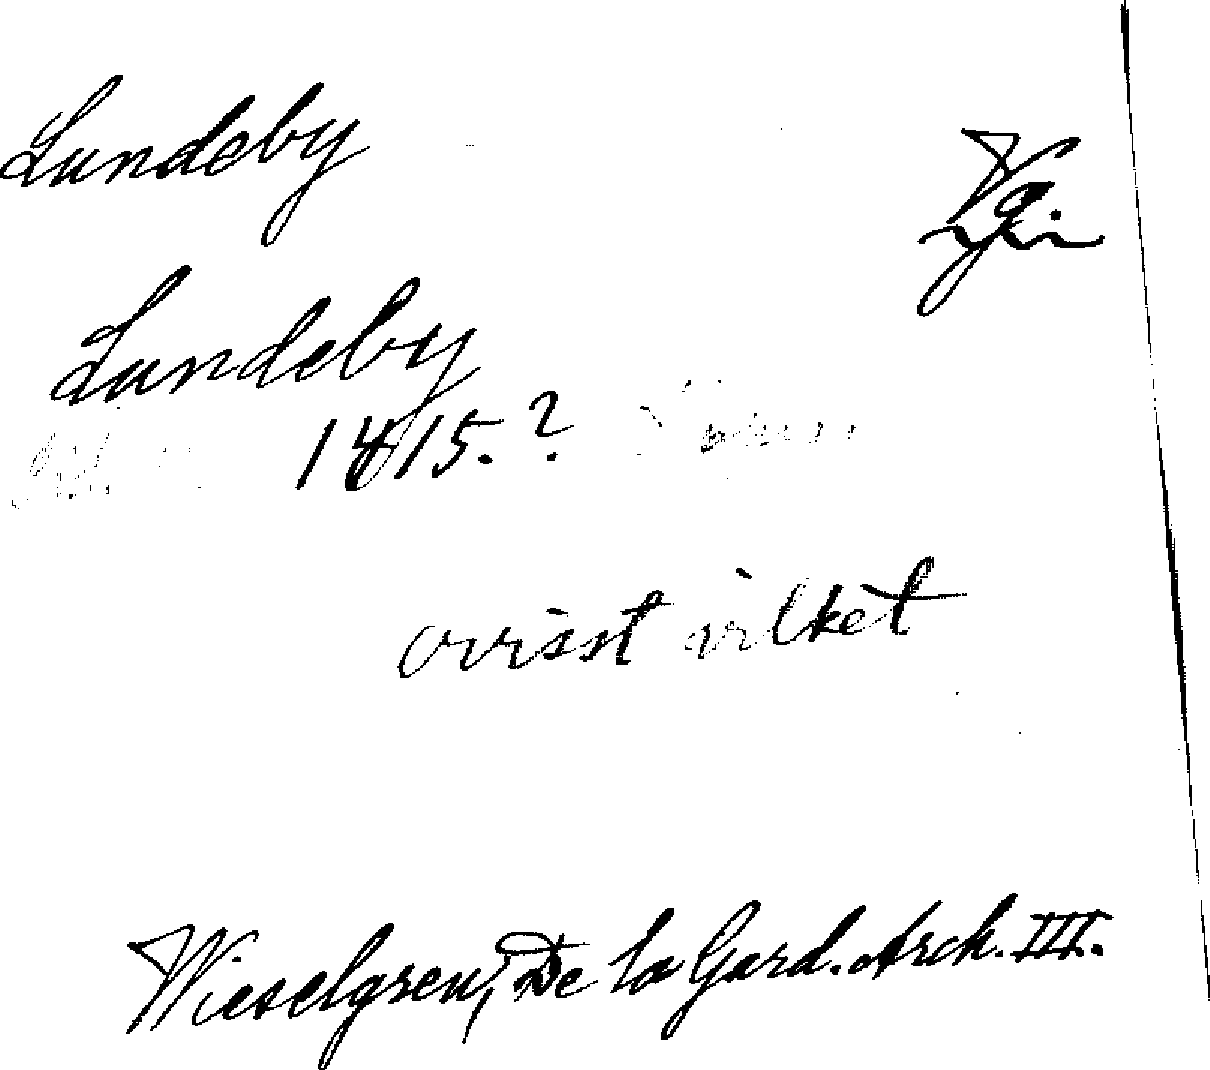 Lundeby
Vg.
Lundeby
1415.?
ovisst vilket
Wieselgren, De la Gard. Arch. III.